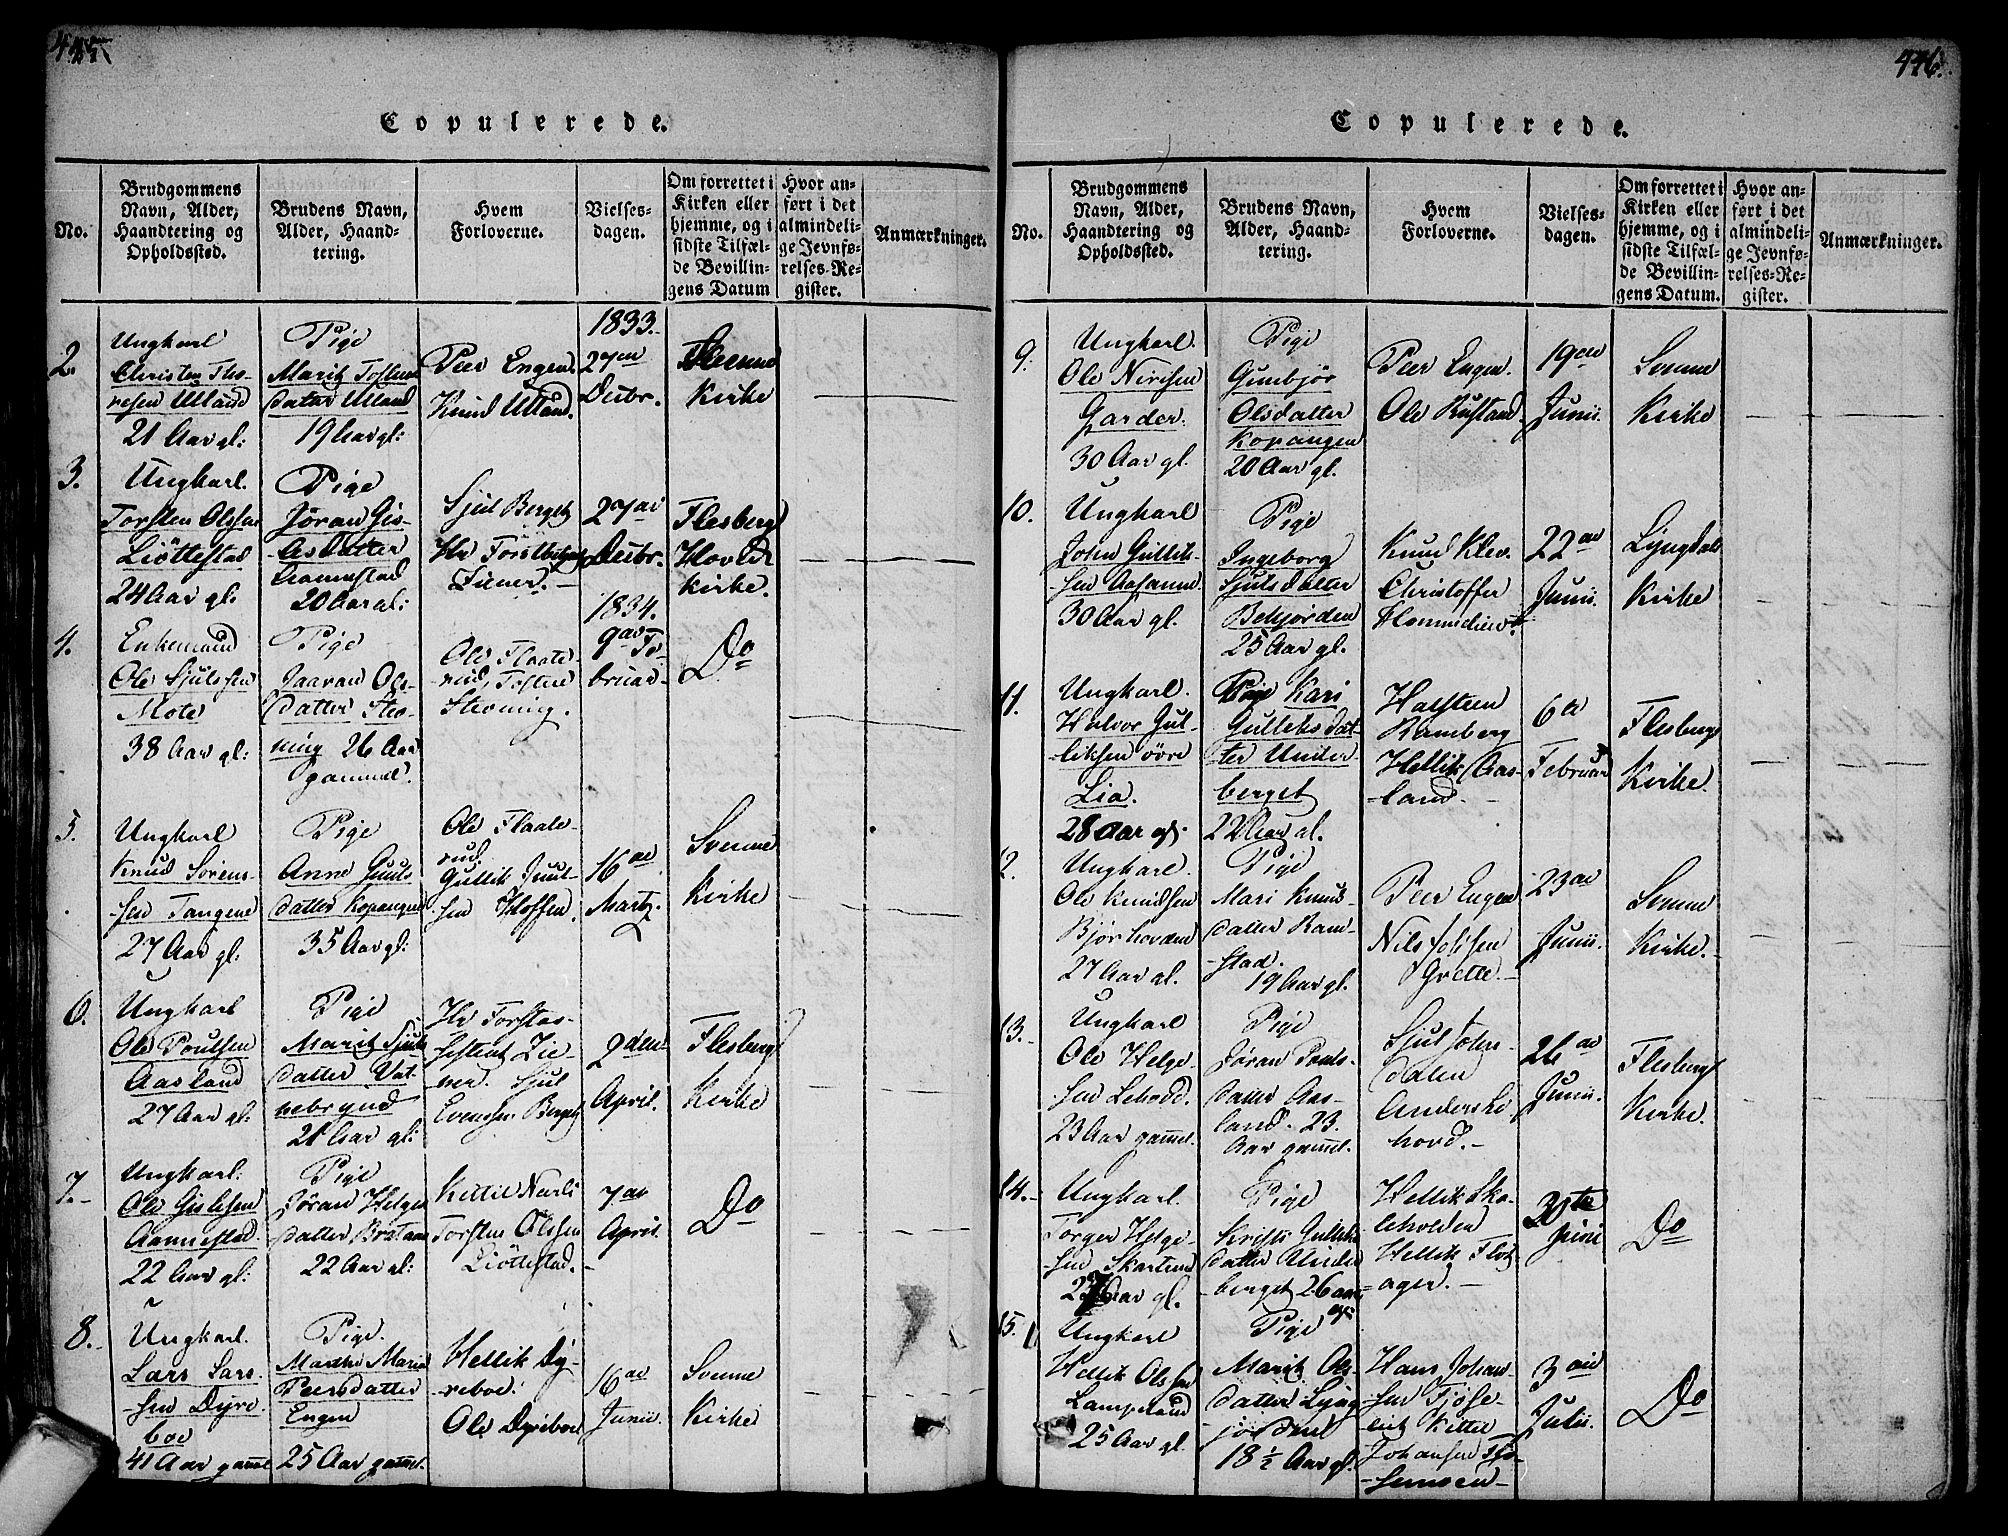 445.
Copulerede.
No.
Brudgommens
Navn, Alder,
Haandtering og
Opholdssted.
Brudens Navn,
Alder, Haand-
tering.
Hvem
Forloverne.
Vielses-
dagen.
Om forrettet i
Kirken eller
hjemme, og i
sidste Tilfæl-
de Bevillin-
gens Datum
Hvor an-
ført i det
almindeli-
ge Jevnfø-
relses-Re-
gister.
Anmærkninger.
2.
Ungkarl
Christen Tho-
resen Ulland
21 Aar gl:
Pige
Marit Tostens
datter Ulland
19 Aar gl:
Peer Engen.
Knud Ulland.
1833.
27de
Decbr.
Svenne
Kirke
3.
Ungkarl.
Torsten Olsen
Liöttestad
24 Aar gl:
Pige
Jöran Gis-
lesdatter
Aamestad
20 Aar gl:
Sjul Berget
Hr Forst
27de
Decbr.
Flesberg
Hoved
Kirke.
4.
Enkemand
Ole Sjulssen
Mote
38 Aar gl:
Pige
Jaaran Ols-
datter Stev-
ning 26 Aar
gammel.
Ole Flaate-
rud, Tosten
Stevning.
1834.
9de Fe-
bruar
Do
5.
Ungkarl
Knud Sörens-
sen Tangene
27 Aar gl:
Pige
Anne Guuls
datter Kopangen
35 Aar gl:
Ole Flaate-
rud.
Gullik Juul-
sen Hoffen.
16de
Martz.
Svenne
Kirke
6.
Ungkarl
Ole Poulsen
Aasland
27 Aar gl:
Pige
Marit Sjuls
datter Vat-
nebrynd
21 Aar gl:
Hr Forstas-
sistent Zie-
ner. Sjul
Evensen Berget
2den
April.
Flesberg
Kirke
7.
Ungkarl:
Ole Gislesen
Aamestad.
22 Aar gl:
Pige
Jöran Helges
datter Brataas
22 Aar gl:
Kittil Narli
Torsten Olssen
Liöttestad.
7de
April.
Do
8.
Ungkarl.
Lars Lars-
sen Dyre-
boe
41 Aar gamel
Pige.
Marthe Marie
Peersdatter
Engen
25 Aar gamel.
Hellik Dy-
reboe.
Ole Dyreboe
16de
Junii.
Svenne
Kirke
446.
Copulerede.
No.
Brudgommens
Navn, Alder,
Haandtering og
Opholdssted.
Brudens Navn,
Alder, Haand-
tering.
Hvem
Forloverne.
Vielses-
dagen.
Om forrettet i
Kirken eller
hjemme, og i
sidste Tilfæl-
de Bevillin-
gens Datum.
Hvor an-
ført i det
almindeli-
ge Jevnfø-
relses-Re-
gister.
Anmærkninger.
9.
Ungkarl.
Ole Nirisen
Garder.
30 Aar gl.
Pige
Gunbjör
Olsdatter
Kopangen
20 Aar gl.
Peer Engen.
Ole Rustand
19de
Junii.
Svenne
Kirke
10.
Ungkarl
John Gullik-
sen Aasanne
30 Aar gl.
Pige
Ingeborg
Sjulsdatter
Bekjorden
25 Aar gl.
Knud Klev.
Christoffer
22de
Junii.
Lyngdals
Kirke
11.
Ungkarl.
Halvor Gul-
liksen övre
Lia.
28 Aar gl.
Pige Kari
Gulleksdat-
ter Under-
berget
22 Aar gl.
Halsteen
Ramberg
Hellik Aas-
land.
6de
Februar
Flesberg
Kirke.
12.
Ungkarl.
Ole Knudsen
Bjørhovden
27 Aar gl.
Pige
Mari Knuds
datter Ram-
stad.
19 Aar gl.
Peer Engen
Nils Jolsen
Grette.
23de
Junii.
Svenne
Kirke.
13.
Ungkarl
Ole Helge-
sen Lehovd
23 Aar gamel.
Pige
Jöran Pouls-
datter Aas-
land. 23
Aar gamel.
Sjul Johns-
dalen
Anders Le-
hovd.
26de
Junii.
Flesberg
Kirke.
14.
Ungkarl.
Torger Helge-
sen Skartum
27 Aar gl.
Pige
Kristi Gulliks
datter Under
berget 26 aar
gl.
Hellik Ska-
leholden
Hellik Flat-
ager.
30te
juni
Do
15.
Ungkarl
Hellik Olssen
Lampeland
25 Aar gl.
Pige
Marit Ols-
datter Lyng
jordene
18 ½ Aar gl.
Hans Johan-
sen Fjöse-
Kittel
Johansen Fjö-
semoen
3die
Julii.
Do